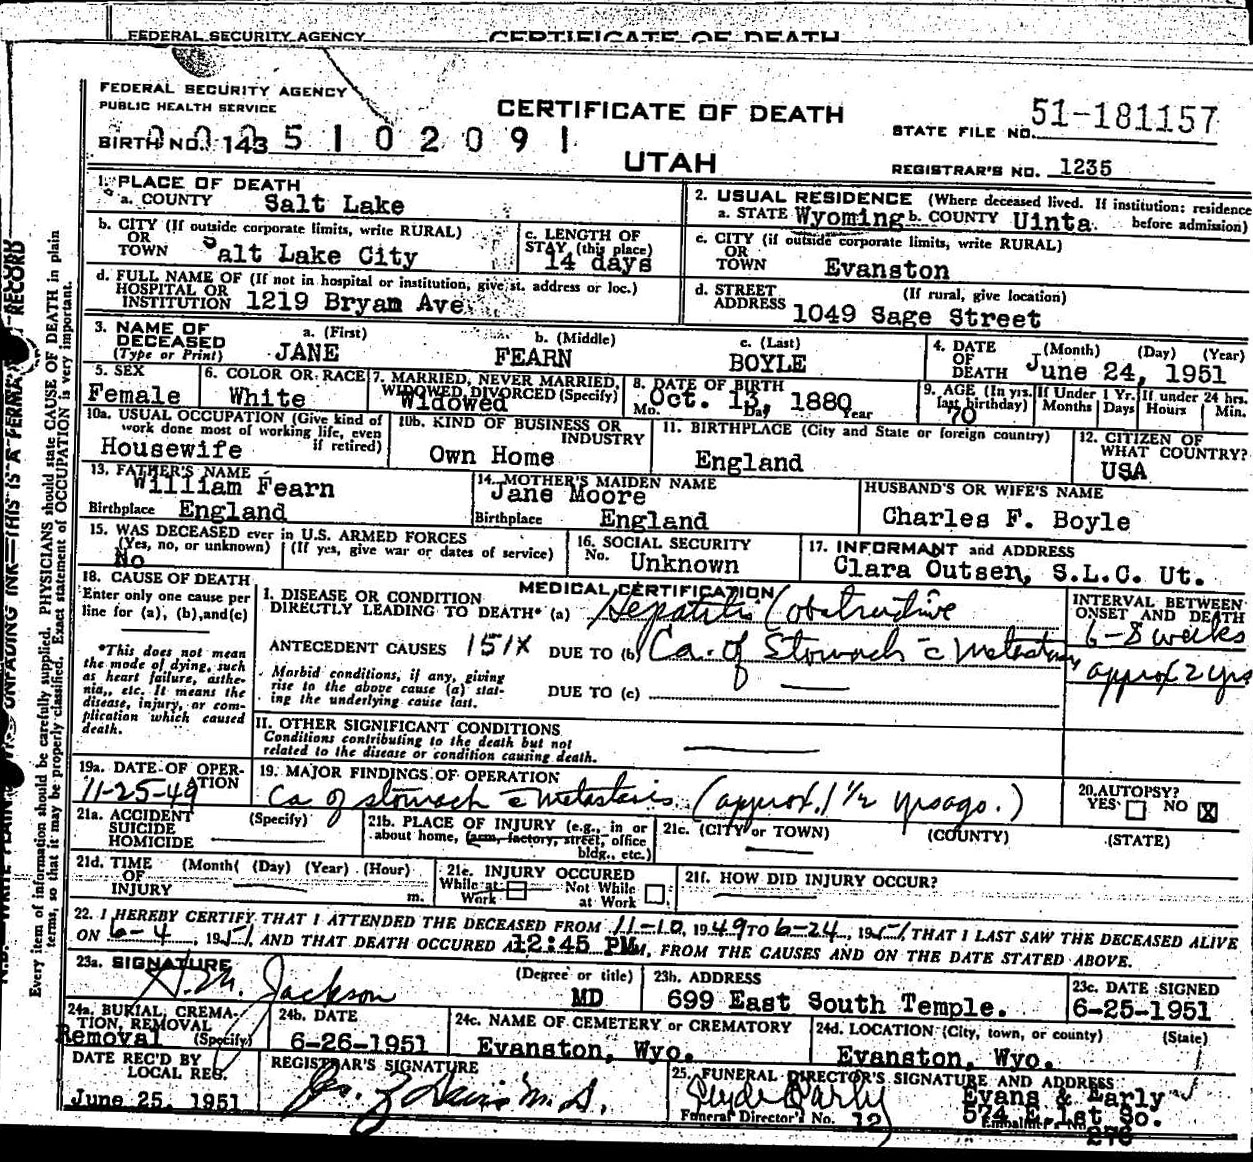 FEDERAL SECURITY AGENCY CERTIFICATE OF DEATH
FEDERAL SECURITY AGENCY
PUBLIC HEALTH SERVICE
CERTIFICATE OF DEATH
51-181157
STATE FILE NO.
BIRTH NO. 143 5 1 0 2 0 9 1
UTAH
REGISTRAR'S NO. 1235
1. PLACE OF DEATH
a. COUNTY Salt Lake
2. USUAL RESIDENCE (Where deceased lived. If institution: residence before admission)
a. STATE Wyoming b. COUNTY Uinta
b. CITY (If outside corporate limits, write RURAL)
OR TOWN Salt Lake City
c. LENGTH OF STAY (this place)
14 days
c. CITY (if outside corporate limits, write RURAL)
OR TOWN Evanston
d. FULL NAME OF (If not in hospital or institution, give st. address or loc.)
HOSPITAL OR
INSTITUTION 1219 Bryan Ave.
d. STREET ADDRESS (If rural, give location)
1049 Sage Street
3. NAME OF DECEASED
(Type or Print)
a. (First) JANE
b. (Middle) FEARN
c. (Last) BOYLE
4. DATE OF DEATH (Month) (Day) (Year)
June 24, 1951
5. SEX
Female
6. COLOR OR RACE
White
7. MARRIED, NEVER MARRIED, WIDOWED, DIVORCED (Specify)
Widowed
8. DATE OF BIRTH
Oct. 13, 1880
Mo. Day Year
9. AGE (In yrs. last birthday)
70
If Under 1 Yr. Months Days
If under 24 hrs. Hours Min.
10a. USUAL OCCUPATION (Give kind of work done most of working life, even if retired)
Housewife
10b. KIND OF BUSINESS OR INDUSTRY
Own Home
11. BIRTHPLACE (City and State or foreign country)
England
12. CITIZEN OF WHAT COUNTRY?
USA
13. FATHER'S NAME
William Fearn
Birthplace England
14. MOTHER'S MAIDEN NAME
Jane Moore
Birthplace England
HUSBAND'S OR WIFE'S NAME
Charles F. Boyle
15. WAS DECEASED ever in U.S. ARMED FORCES
(Yes, no, or unknown) (If yes, give war or dates of service)
No
16. SOCIAL SECURITY
No. Unknown
17. INFORMANT and ADDRESS
Clara Outsen, S.L.C. Ut.
18. CAUSE OF DEATH
Enter only one cause per line for (a), (b), and (c)
*This does not mean the mode of dying, such as heart failure, asthenia, etc. It means the disease, injury, or complication which caused death.
MEDICAL CERTIFICATION
I. DISEASE OR CONDITION
DIRECTLY LEADING TO DEATH* (a) Hepatitis (obstructive
INTERVAL BETWEEN ONSET AND DEATH
6-8 weeks
ANTECEDENT CAUSES 151X DUE TO (b) Ca. of Stomach c̄ metastasis
approx 2 yrs
Morbid conditions, if any, giving rise to the above cause (a) stating the underlying cause last.
DUE TO (c)
II. OTHER SIGNIFICANT CONDITIONS
Conditions contributing to the death but not related to the disease or condition causing death.
19a. DATE OF OPERATION
11-25-49
19. MAJOR FINDINGS OF OPERATION
Ca of stomach c̄ metastasis (approx. 1 1/2 yrs ago.)
20. AUTOPSY?
YES NO X
21a. ACCIDENT SUICIDE HOMICIDE (Specify)
21b. PLACE OF INJURY (e.g., in or about home, farm, factory, street, office bldg., etc.)
21c. (CITY or TOWN) (COUNTY) (STATE)
21d. TIME OF INJURY (Month) (Day) (Year) (Hour) m.
21e. INJURY OCCURED
While at Work Not While at Work
21f. HOW DID INJURY OCCUR?
22. I HEREBY CERTIFY THAT I ATTENDED THE DECEASED FROM 11-10, 1949 TO 6-24, 1951, THAT I LAST SAW THE DECEASED ALIVE
ON 6-4, 1951, AND THAT DEATH OCCURED AT 12:45 PM, FROM THE CAUSES AND ON THE DATE STATED ABOVE.
23a. SIGNATURE (Degree or title)
Jackson MD
23b. ADDRESS
699 East South Temple.
23c. DATE SIGNED
6-25-1951
24a. BURIAL, CREMATION, REMOVAL (Specify)
Removal
24b. DATE
6-26-1951
24c. NAME OF CEMETERY or CREMATORY
Evanston, Wyo.
24d. LOCATION (City, town, or county) (State)
Evanston, Wyo.
DATE REC'D BY LOCAL REG.
June 25, 1951
REGISTRAR'S SIGNATURE
Davis M.D.
25. FUNERAL DIRECTOR'S SIGNATURE AND ADDRESS
Clyde Early
Evans & Early
574 E. 1st So.
Funeral Director's No. 12
Embalmer's No. 276
Every item of information should be carefully supplied. PHYSICIANS should state CAUSE OF DEATH in plain
terms, so that it may be properly classified. Exact statement of OCCUPATION is very important.
UNFADING INK—THIS IS A PERMANENT RECORD